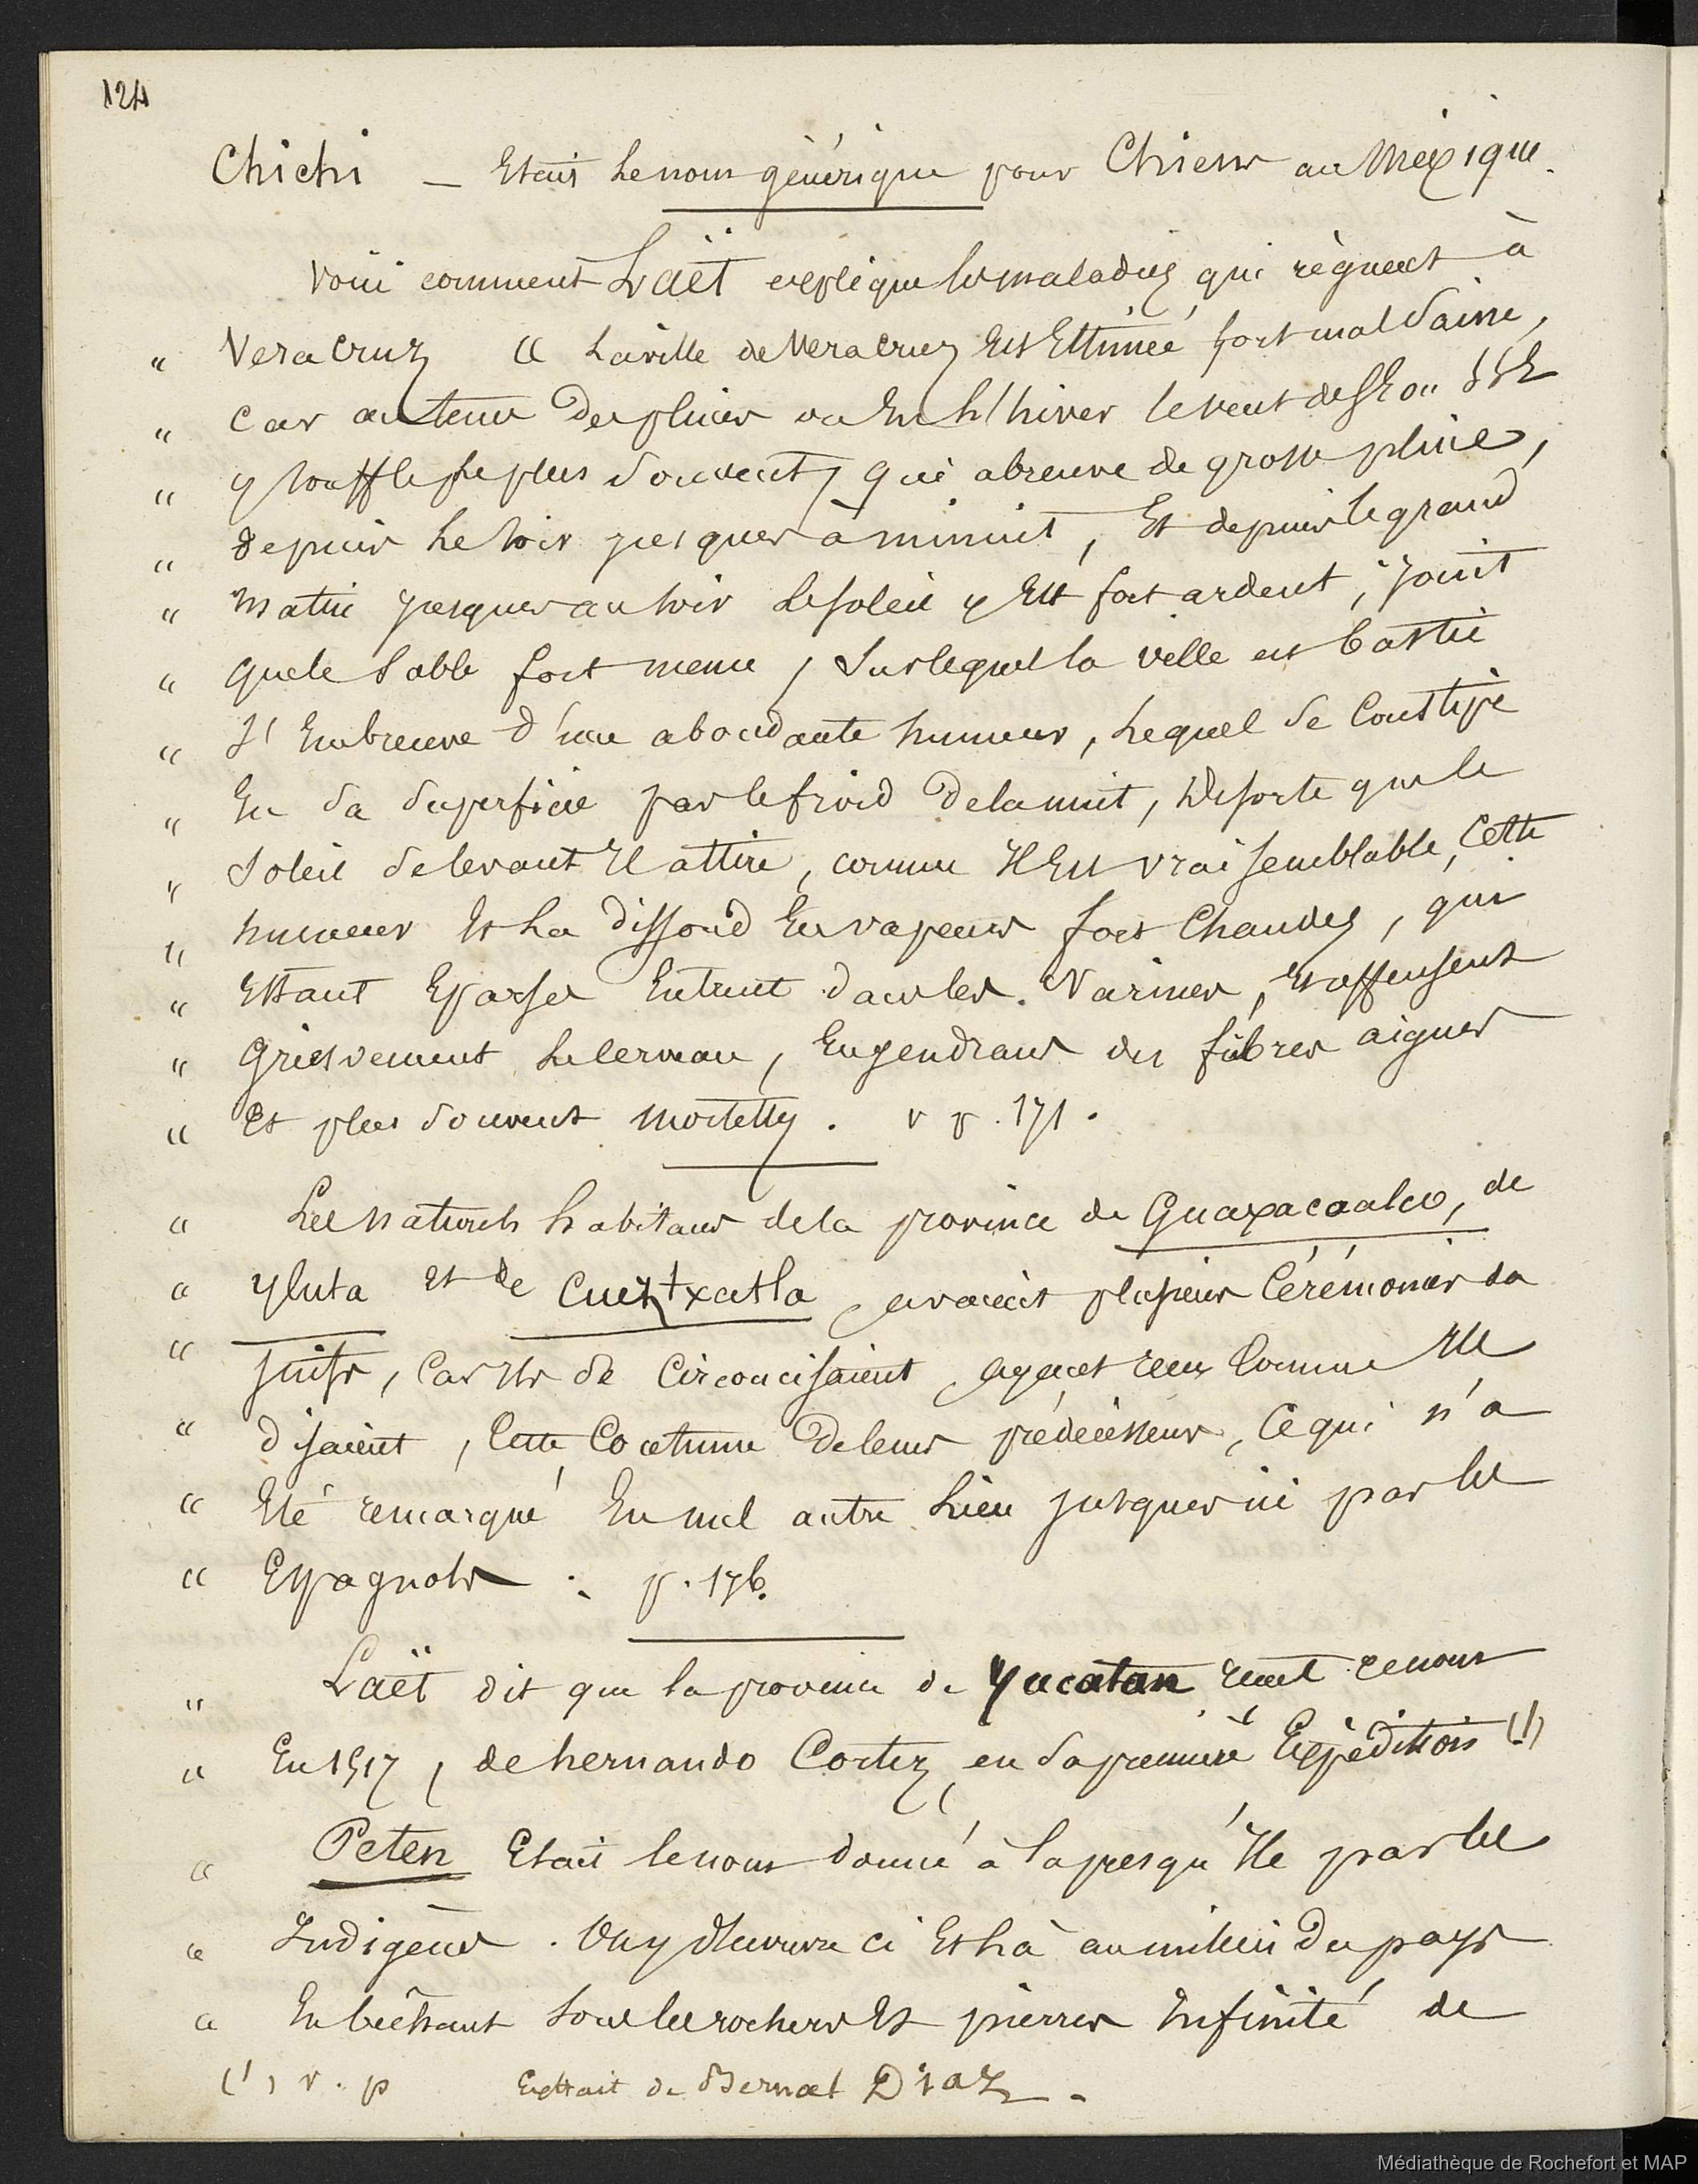 124
Chichi — Etait le nom générique pour Chiens au Méxique.
Voici comment Laët explique les maladies qui règnent à
" Vera Cruz « La ville de Vera Cruz est Estimée fort mal saine,
" Car au tems des pluies ou En l'hiver le vent de SE ou SSE
" y souffle le plus souvent, qui abreuve de grosse pluie,
" depuis le soir jusques à minuit, Et depuis le grand
" matin jusques au soir le soleil y Est fort ardent, joint
" que le sable fort menu, sur lequel la ville est bastie
" s'Embreuve d'une abondante humeur, lequel se Constipe
" En sa superficie par le froid de la nuit, de sorte que le
" Soleil se levant Il attire, comme Il Est vraisemblable, Cette
" humeur Et la dissoud En vapeurs fort Chaudes, qui
" Estant Eparses Entrent dans les Narines, Et offensent
" Griesvement le Cerveau, Engendrans des fiebres aigues
" Et plus souvent mortelles. v p. 171.
" Les naturels habitans de la province de Guaxacoalco, de
" Yluta Et de Cueztxatla avaient plusieurs Cérémonies da
" Juifs, Car Ils se Circoncisaient ayant recu Comme Ils
" disaient, Cette Coutume de leurs prédécesseurs, Ce qui n'a
" Eté remarqué En nul autre lieu jusques ici par les
" Espagnols : p. 176.
" Laët dit que la province de Yucatan recut ce nom
" En 1517, de hernando Cortez en sa première Expédition (1)
" Peten Etait le nom donné à la presqu'Ile par les
" Indigènes. On y découvre ci Et là au milieu du pays
" En bêchant sous les rochers Et pierres Infinité de
(1) v. p Extrait de Bernal Diaz.
Médiathèque de Rochefort et MAP